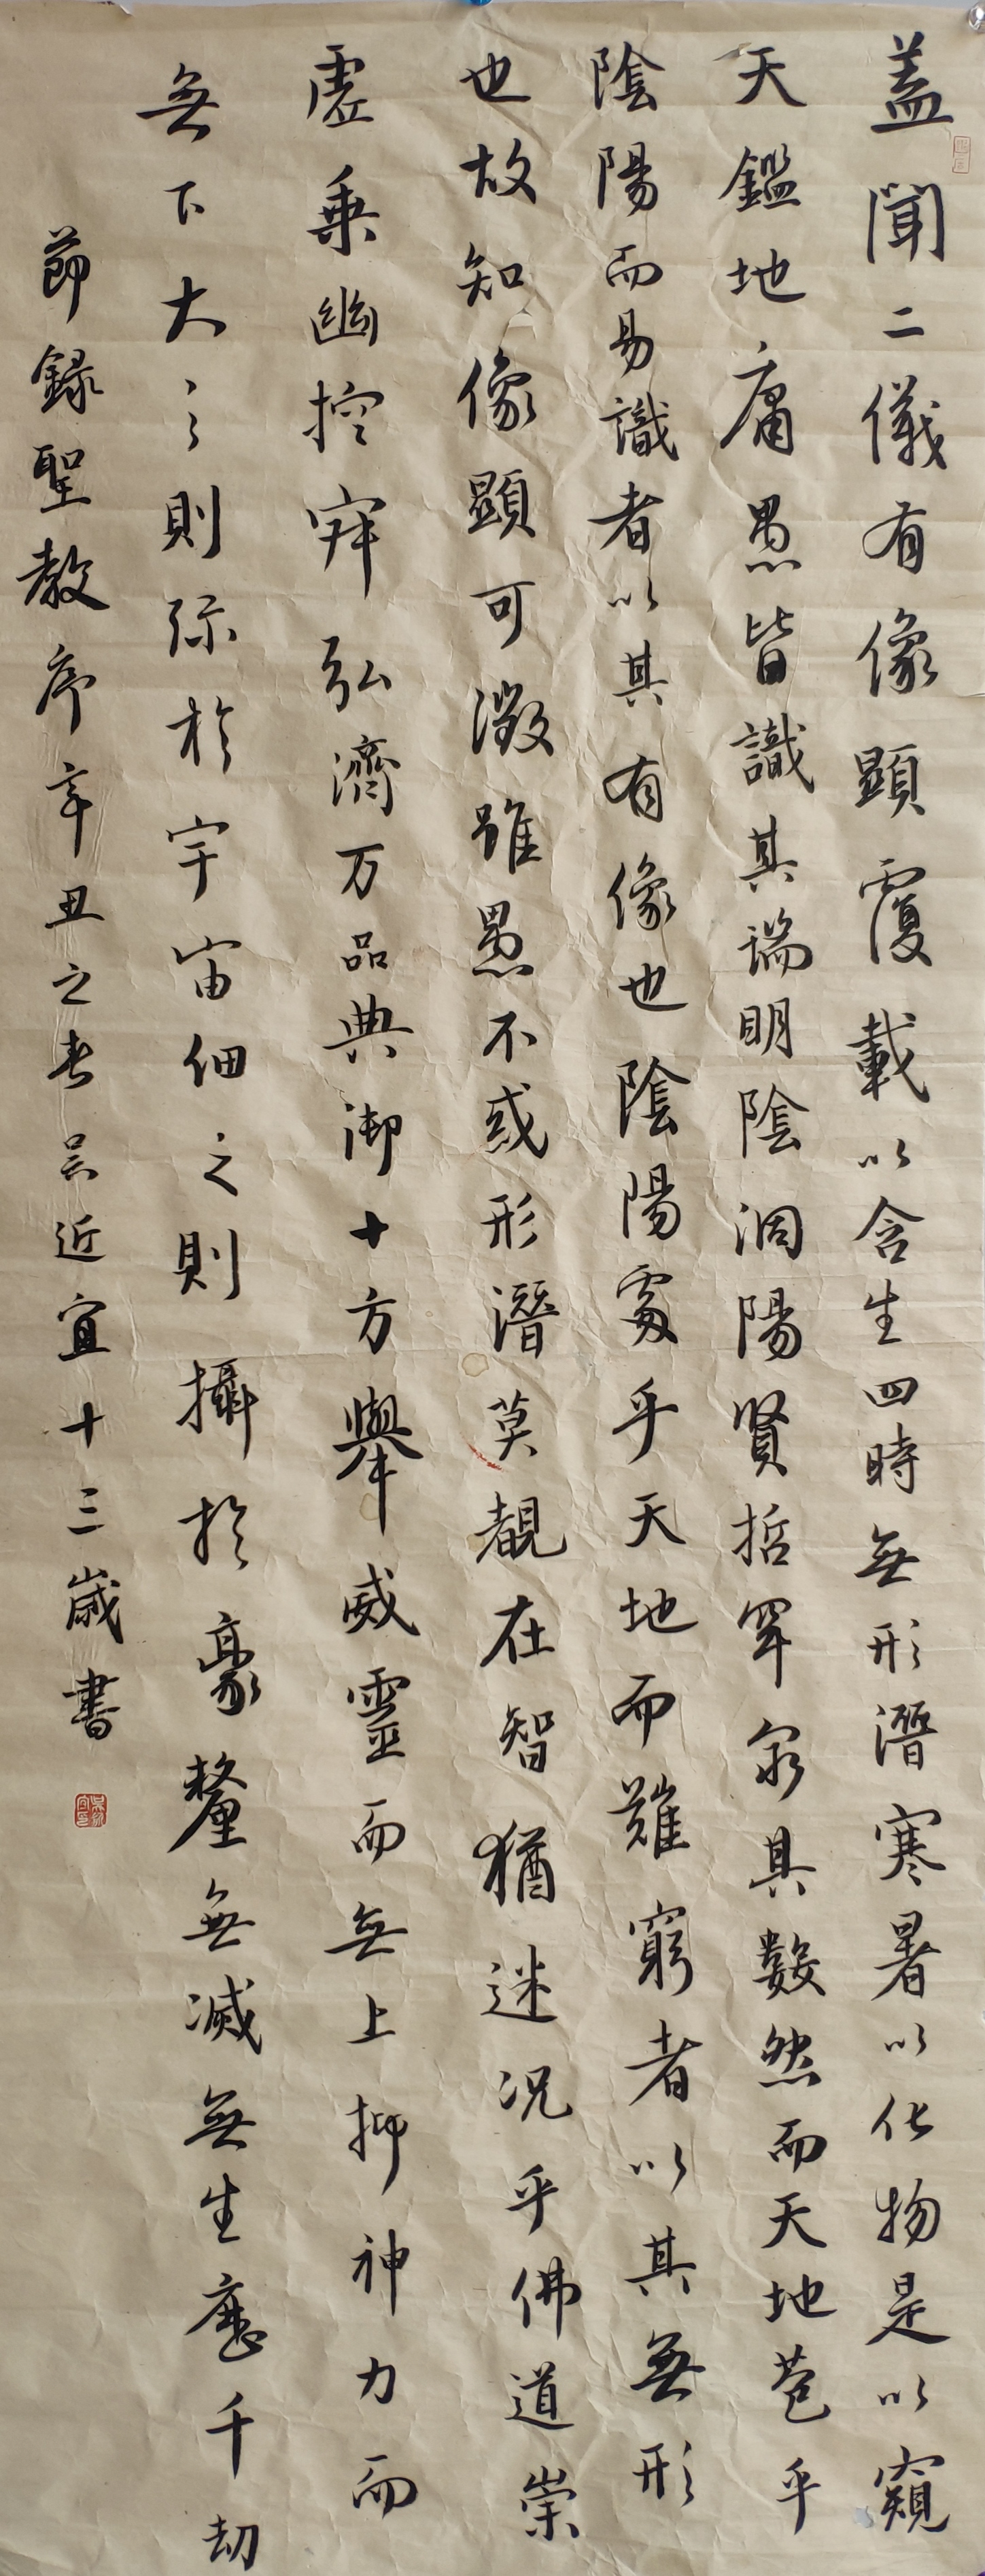 蓋聞二儀有像顯覆載以含生四時無形潛寒暑以化物是以窺
天鑑地庸愚皆識其端明陰洞陽賢哲罕窮其數然而天地苞乎
陰陽而易識者以其有像也陰陽處乎天地而難窮者以其無形
也故知像顯可徵雖愚不惑形潛莫覩在智猶迷況乎佛道崇
虛乘幽控寂弘濟万品典御十方舉威靈而無上抑神力而
無下大之則弥於宇宙細之則攝於豪釐無滅無生歷千劫
節錄聖教序辛丑之春吴近宜十三歲書